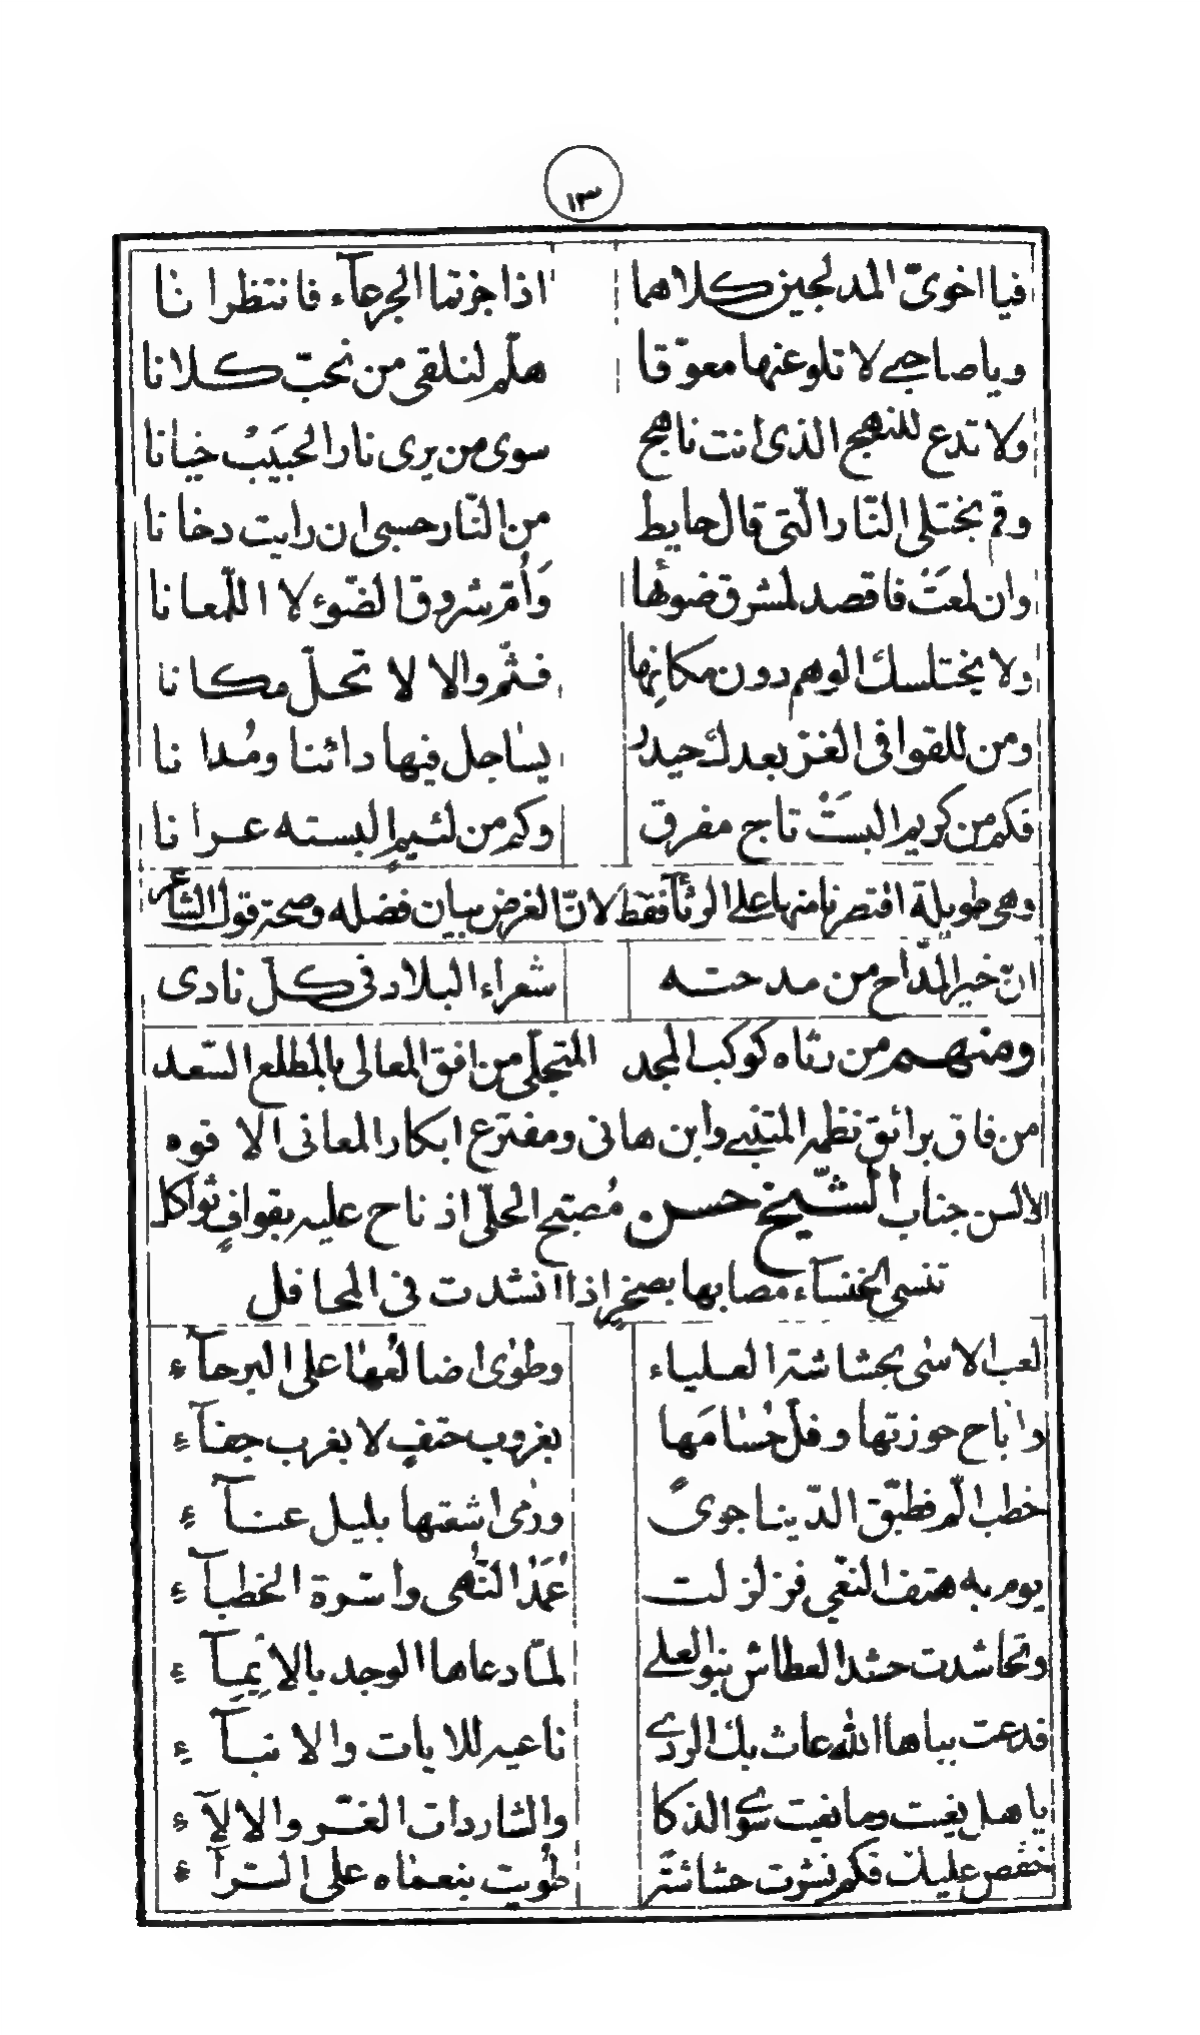 ١٣
فيا اخويّ المدلجين كلاهما اذا جزتما الجرعآء فانتظرانا
ويا صاحبي لا تلو عنها معوّقا هلّم لنلقى من نحبّ كلانا
ولا تدع للنهج الذى انت ناهج سوى من يرى نار الحبيب خيانا
وقم نجتلى النّار الّتى قال حايط من النّار حسبى ان رايت دخانا
وان لمعت فاقصد لمشرق ضوئها وأمّ شروق الضّوء لا اللّمعانا
ولا يختلسك الوهم دون مكانها فثّم والا لا تحلّ مكانا
ومن للقوافى الغر بعدك حيدر يساجل فيها دائنا ومُدانا
فكم من كريم البست تاج مفرق وكم من لئيمٍ البسته عرانا
وهى طويلة اقتصرنا منها على الرثآ فقط لانّ الغرض بيان فضله وصحة قول الشاعر
انّ خير المدّاح من مدحته شعراء البلاد فى كلّ نادى
ومنهم من رثاه كوكب المجد المتجلّى من افق المعالى بالمطلع السّعد
من فاق برائق نظمه المتنبي وابن هانى ومفترع ابكار المعانى الا قوه
الالسن جناب الشّيخ حسن مُصبّح الحلّى اذ ناح عليه بقوافٍ ثواكل
تنسى الخنسآء مصابها بصخرٍ اذا انشدت فى المحافل
لعب الاسى بحشاشة العلياء وطوى اضالعها على البرحآء
واباح حوزتها وفلّ حسامها بغروب حتفٍ لا بغرب جفآء
خطب الّم فطبّق الدّنيا جوىً ورمى اشعتها بليل عنآء
يوم به هتف النعّى فزلزلت عُمَدُ النّهى واسّرة الخطبآء
وتحاشدت حشد العطاش بنو العلى لمّا دعاها الوجد بالايمآء
فدعت بباها الله عاث بك الردى ناعيه للايات والانبآء
يا هل بغيت وما نعيت سوى الذكا والشاردات الغّر والالآء
خفّض عليك فكم نشرت حشاشة طويت بنعماه على السّرآء